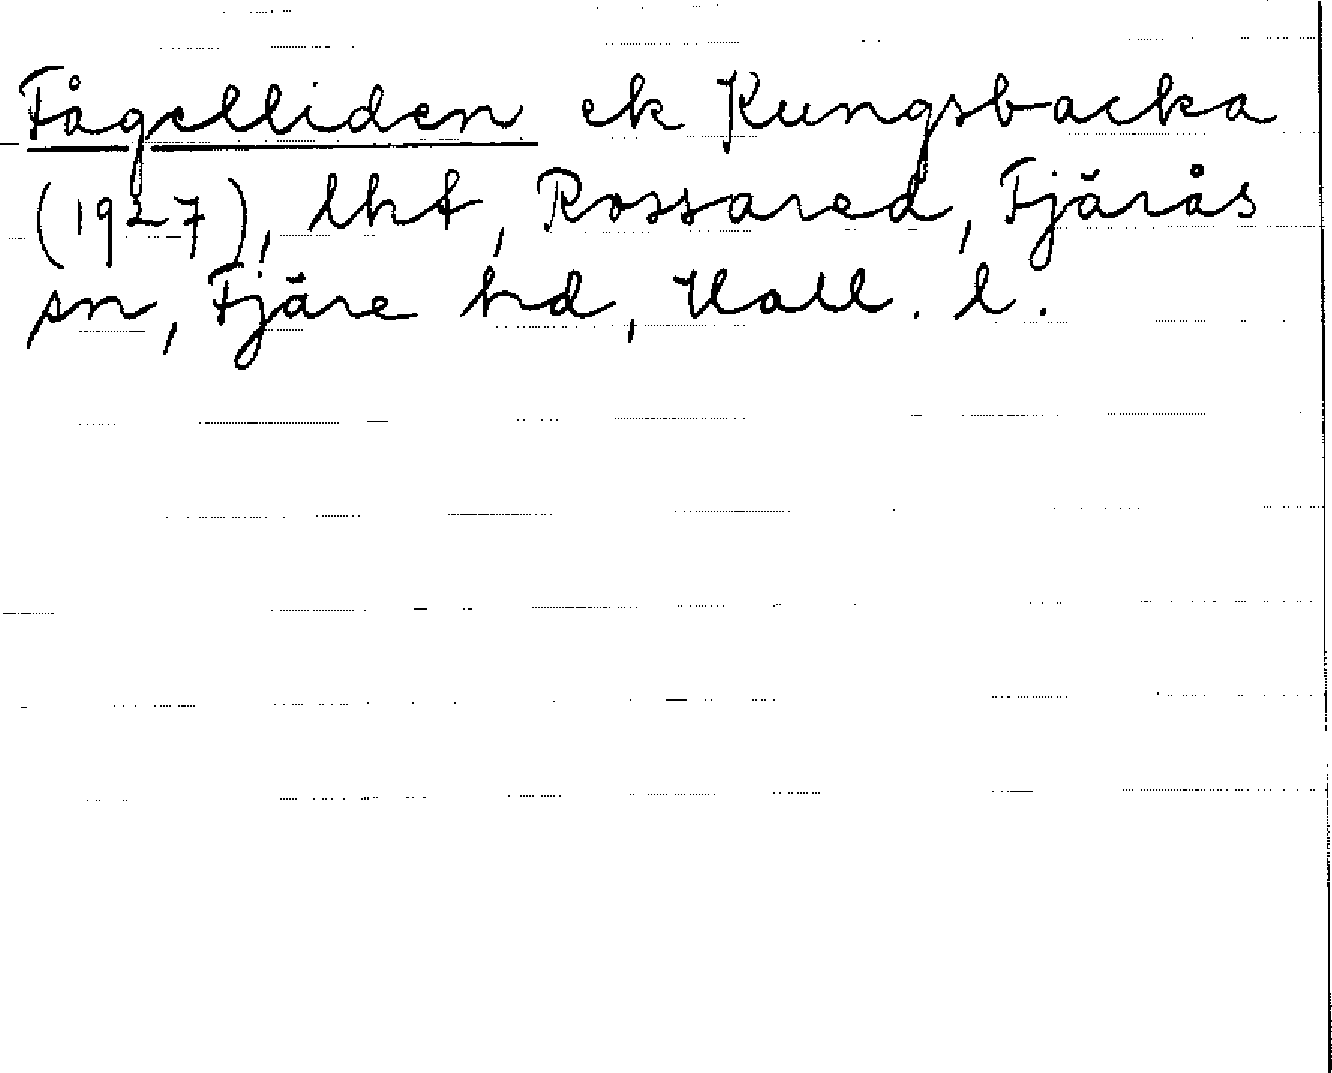 Fågelliden ek Kungsbacka
(1927), lht, Rossared, Fjärås
sn, Fjäre hd, Hall. l.